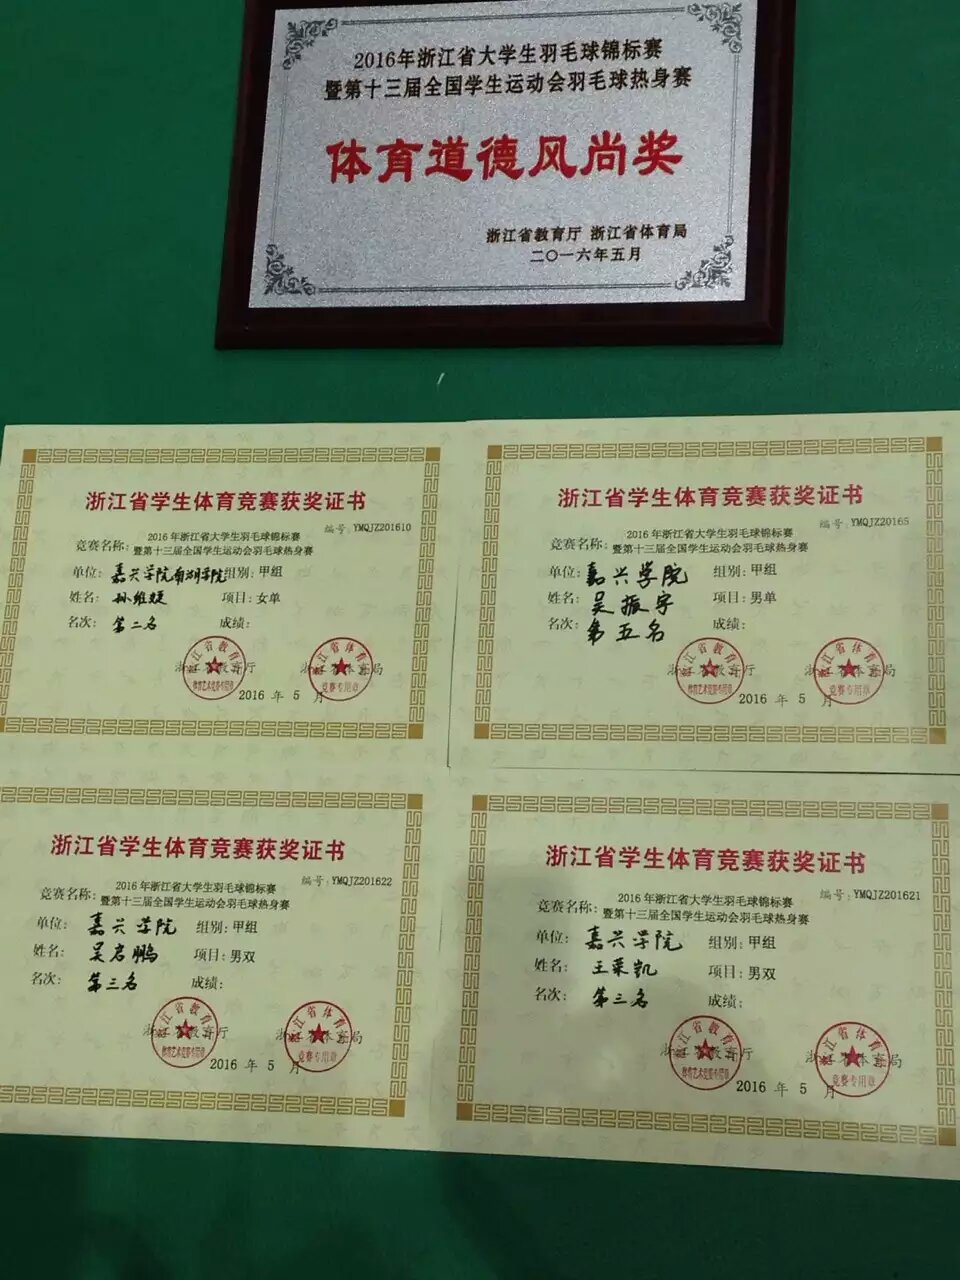 2016年浙江省大学生羽毛球锦标赛
暨第十三届全国学生运动会羽毛球热身赛
体育道德风尚奖
浙江省教育厅 浙江省体育局
二〇一六年五月
浙江省学生体育竞赛获奖证书
编号:YMQJZ201610
竞赛名称:2016年浙江省大学生羽毛球锦标赛
暨第十三届全国学生运动会羽毛球热身赛
单位:嘉兴学院南湖学院 组别:甲组
姓名:孙维 项目:女单
名次:第二名 成绩:
浙江省教育厅 浙江省体育局
2016 年 5 月
浙江省学生体育竞赛获奖证书
编号:YMQJZ20165
竞赛名称:2016年浙江省大学生羽毛球锦标赛
暨第十三届全国学生运动会羽毛球热身赛
单位:嘉兴学院 组别:甲组
姓名:吴振宇 项目:男单
名次:第五名 成绩:
浙江省教育厅 浙江省体育局
2016 年 5 月
浙江省学生体育竞赛获奖证书
编号:YMQJZ201622
竞赛名称:2016年浙江省大学生羽毛球锦标赛
暨第十三届全国学生运动会羽毛球热身赛
单位:嘉兴学院 组别:甲组
姓名:吴启鹏 项目:男双
名次:第三名 成绩:
浙江省教育厅 浙江省体育局
2016 年 5 月
浙江省学生体育竞赛获奖证书
编号:YMQJZ201621
竞赛名称:2016年浙江省大学生羽毛球锦标赛
暨第十三届全国学生运动会羽毛球热身赛
单位:嘉兴学院 组别:甲组
姓名:王莱凯 项目:男双
名次:第三名 成绩:
浙江省教育厅 浙江省体育局
2016 年 5 月